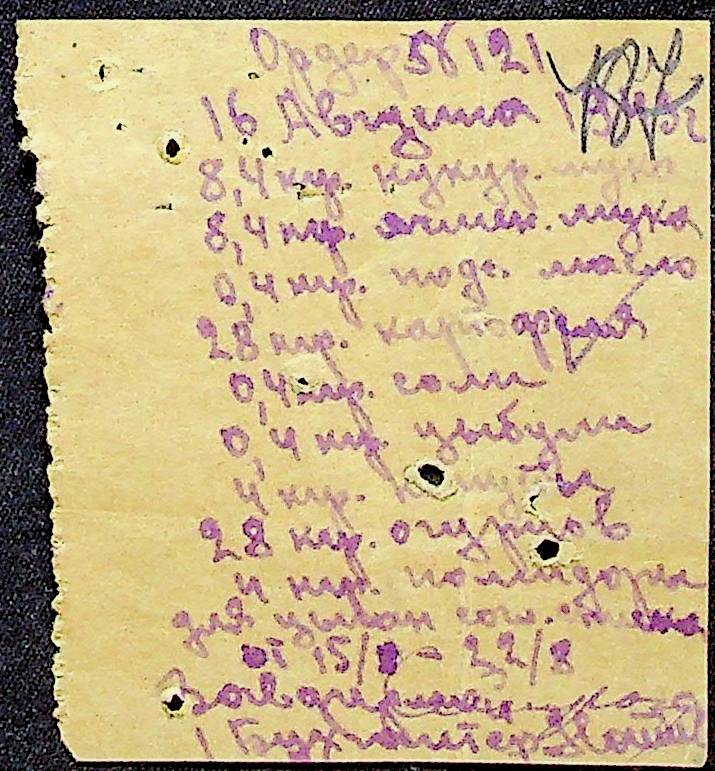 Ордер № 121
787
16 Августа
8,4 кгр. кукур. мука
8,4 кгр. ячмен. мука
0,4 кгр. подс. масло
28 кгр. картофеля
0,4 кгр. соли
0,4 кгр. цыбуля
4 кгр.
28 кгр. огурцов
4 кгр. помидора
для
от 15/8 - 22/8
Бухгалтер